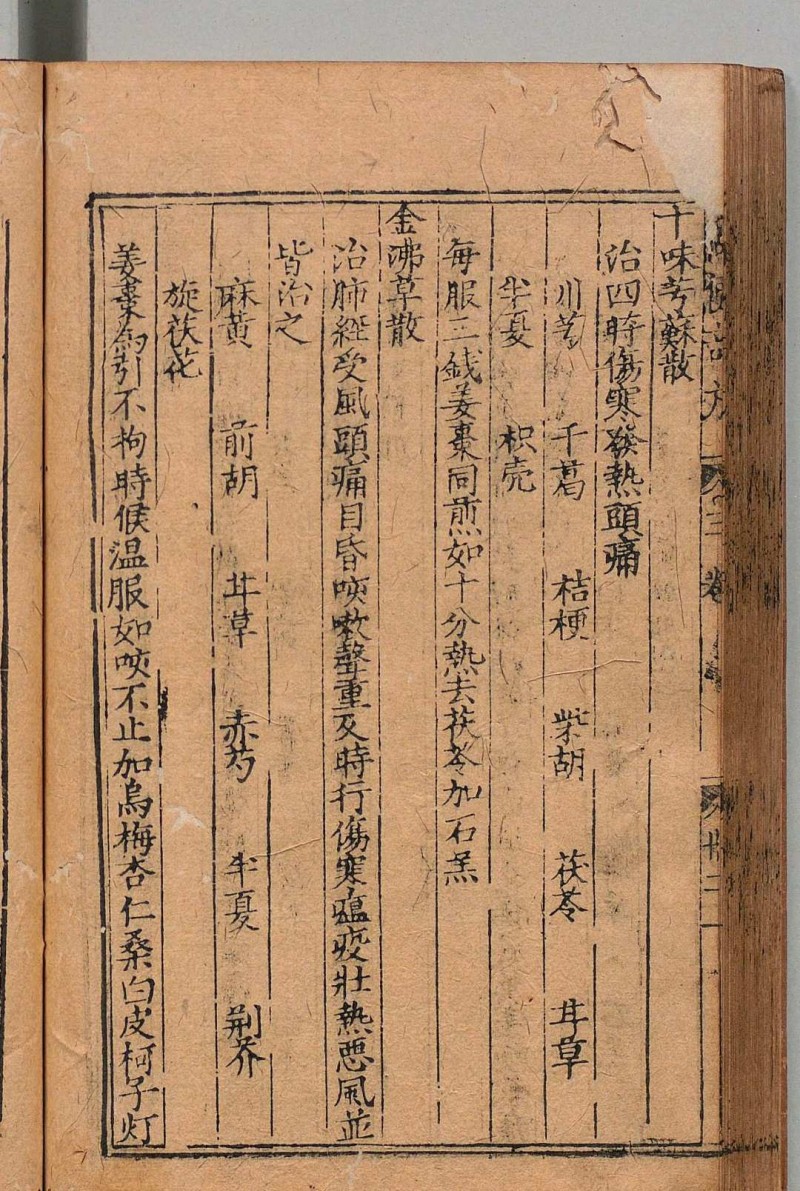 十味芎蘇散
治四時傷寒發熱頭痛
川芎 干葛 桔梗 柴胡 茯苓 甘草
半夏 枳壳
每服三銭姜棗同煎如十分熱去茯苓加石羔
金沸草散
治肺經受風頭痛目昏咳嗽聲重及時行傷寒瘟疫壯熱惡風並
皆治之
麻黄 前胡 甘草 赤芍 半夏 荆芥
旋茯花
姜棗為引不拘時候温服如咳不止加烏梅杏仁桑白皮柯子灯